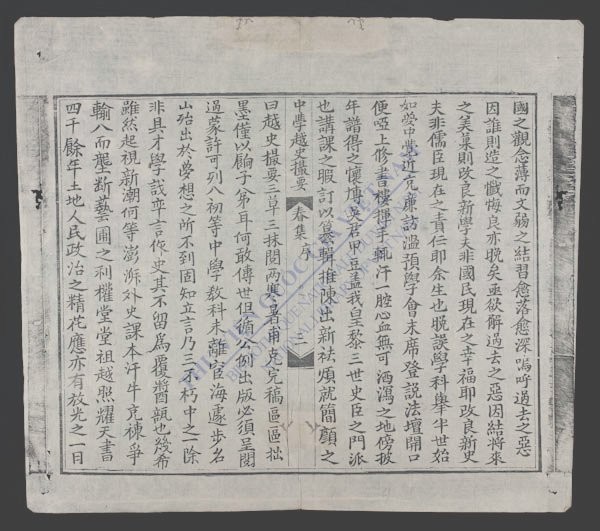 國之觀念薄而文弱之結習愈落愈深嗚呼過去之惡
因誰則造之懺悔良亦晩矣亟欲解過去之惡因結將來
之美菓則改良新學夫非國民現在之幸福耶改良新史
夫非儒臣現在之責任耶余生也晩誤學科舉半世始
如夢中覺任元廉訪濫預學會末席登說法壇開口
便啞上修書樓揮手輒汗一腔心血無可洒瀉之地傍披
年譜得之懷博吳君甲豆盖我皇黎三世史臣之門派
也講課之暇訂以纂輯推陳出新祛煩就簡顏之
中學越史撮要 春集序 三
曰越史撮要三草三抹閱兩寒暑甫克完稿區區拙
墨僅以駒子弟耳何敢傳世但循公例出版必須呈閱
過蒙許可列入初等中學教科未離宦海遽步名
山殆出於夢想之所不到固知立言乃三不朽中之一除
非具才學識卒言作史其不留爲覆醬瓿也幾希
雖然起視新潮何等澎湃外史課本汗牛充棟爭
輸入而壟斷藝圃之利權堂堂祖越熙耀天書
四千餘年土地人民政治之精花應亦有放光之一日
THƯ VIỆN QUỐC GIA VIỆT NAM